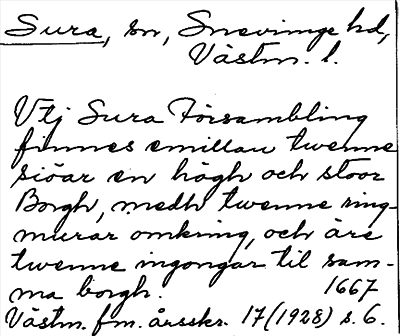 Sura, sn, Snevringe hd,
Västm. l.
Vtj Sura Försambling
finnes emillan twenne
siöar en högh och stoor
Borgh, medh twenne ring-
murar omkring, och äre
twenne ingongar til sam-
ma borgh. 1667
Västm. fm. årsskr. 17 (1928) s. 6.